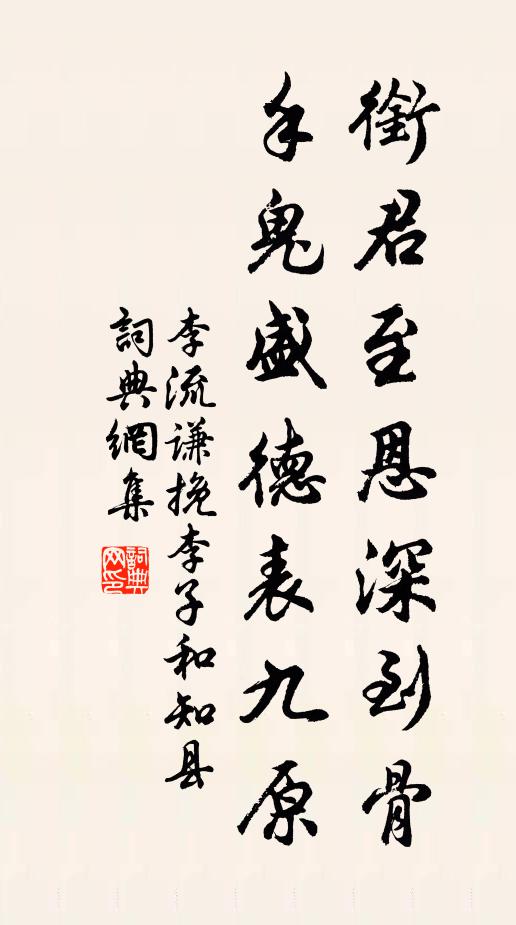 銜君至恩深到骨
鬼盛德表九原
李流谦挽李子和知县
詞典網集
詞典网印